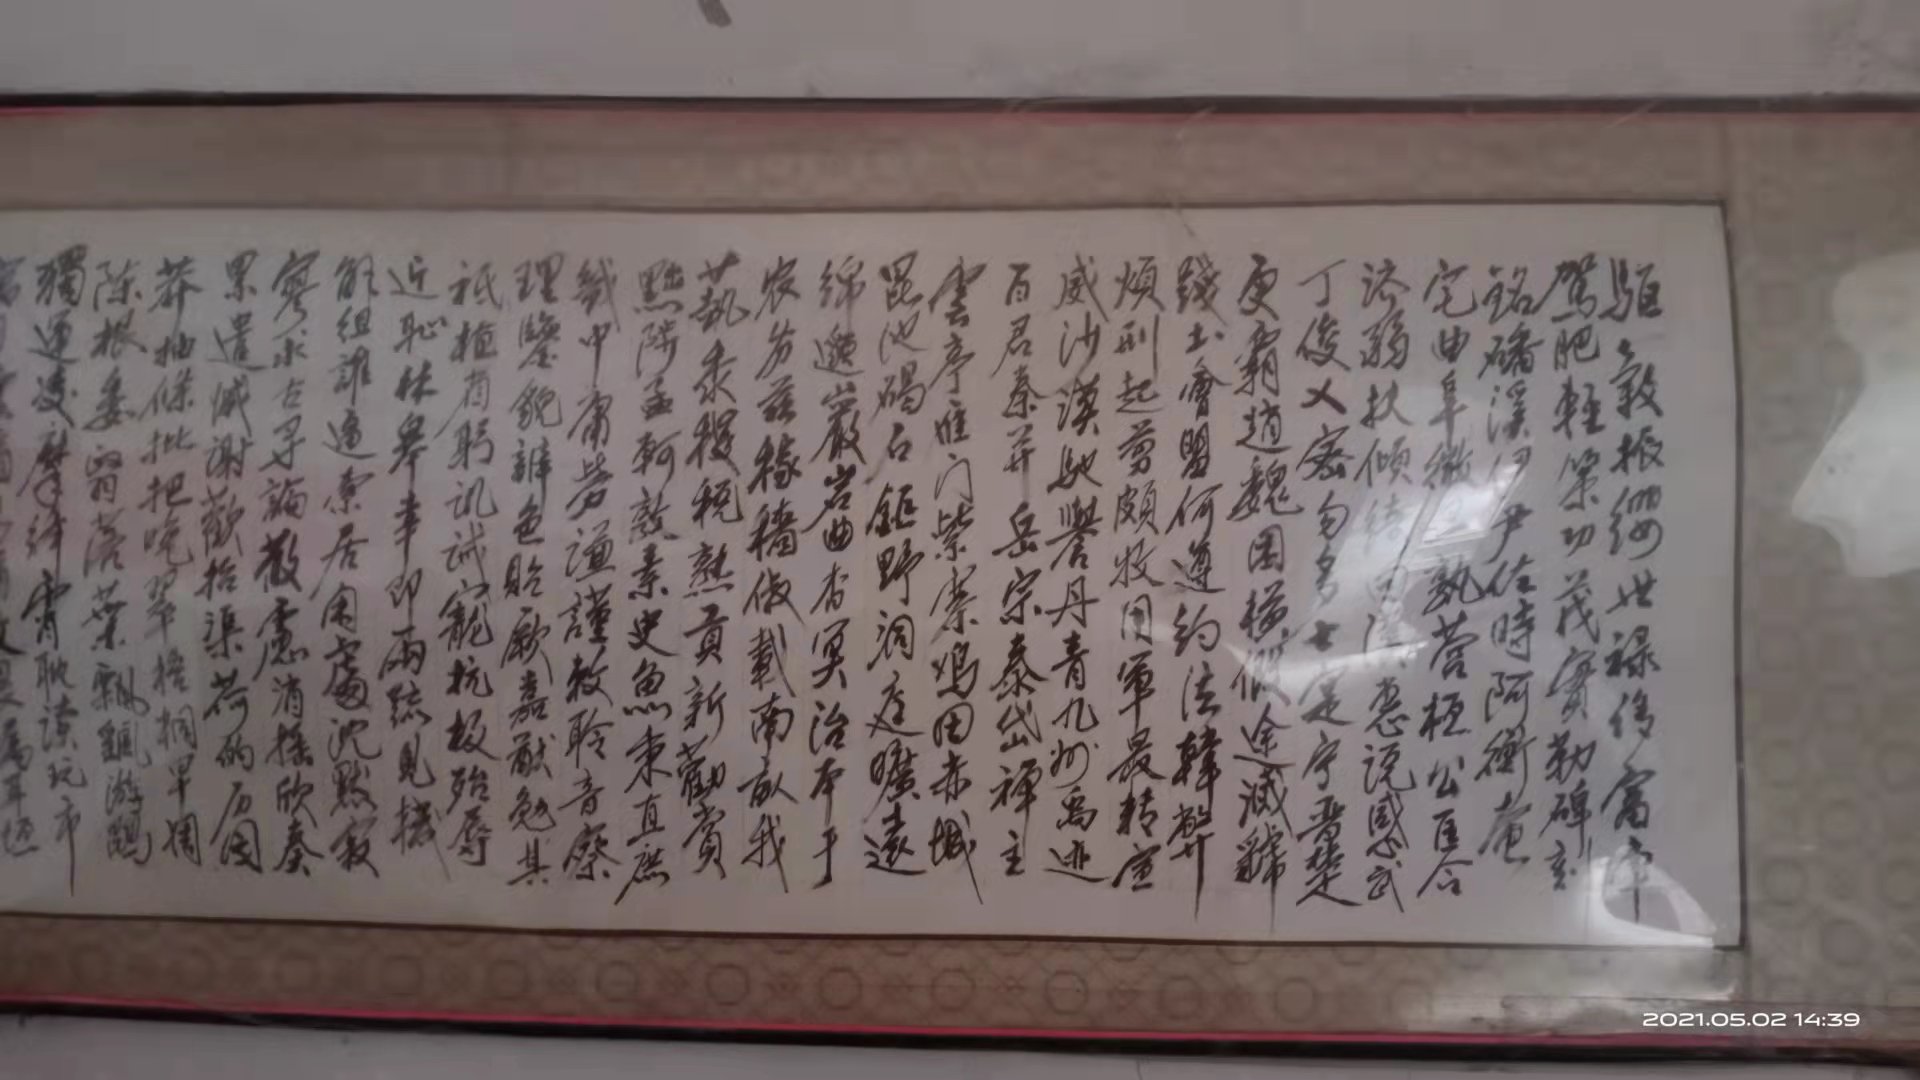 驅轂振纓世祿侈富車
駕肥輕策功茂實勒碑刻
銘磻溪伊尹佐時阿衡奄
宅曲阜微旦孰营桓公匡合
济弱扶傾綺回漢惠説感武
丁俊乂密勿多士寔宁晋楚
更霸趙魏困橫假途滅虢
踐土會盟何遵約法韓弊
煩刑起翦頗牧用軍最精宣
威沙漠馳譽丹青九州禹迹
百君秦并岳宗泰岱禪主
雲亭雁门紫塞鸡田赤城
昆池碣石鉅野洞庭曠遠
綿邈巖岩曲杳冥治本于
农务兹稼穡俶載南畝我
藝黍稷税熟貢新勸賞
黜陟孟軻敦素史魚秉直庶
幾中庸勞謙謹敕聆音察
理鑒貌辨色貽厥嘉猷勉其
祗植省躬讥誡寵抗极殆辱
近恥林皋幸即兩疏見機
解組誰逼索居閑處沉默寂
寥求古寻論散慮消搖欣奏
累遣慼謝歡招渠荷的历园
莽抽條枇杷晚翠梧桐早凋
陳根委翳落葉飄颻游鵾
獨運凌摩絳霄耽讀玩市
屬耳垣
2021.05.02 14:39